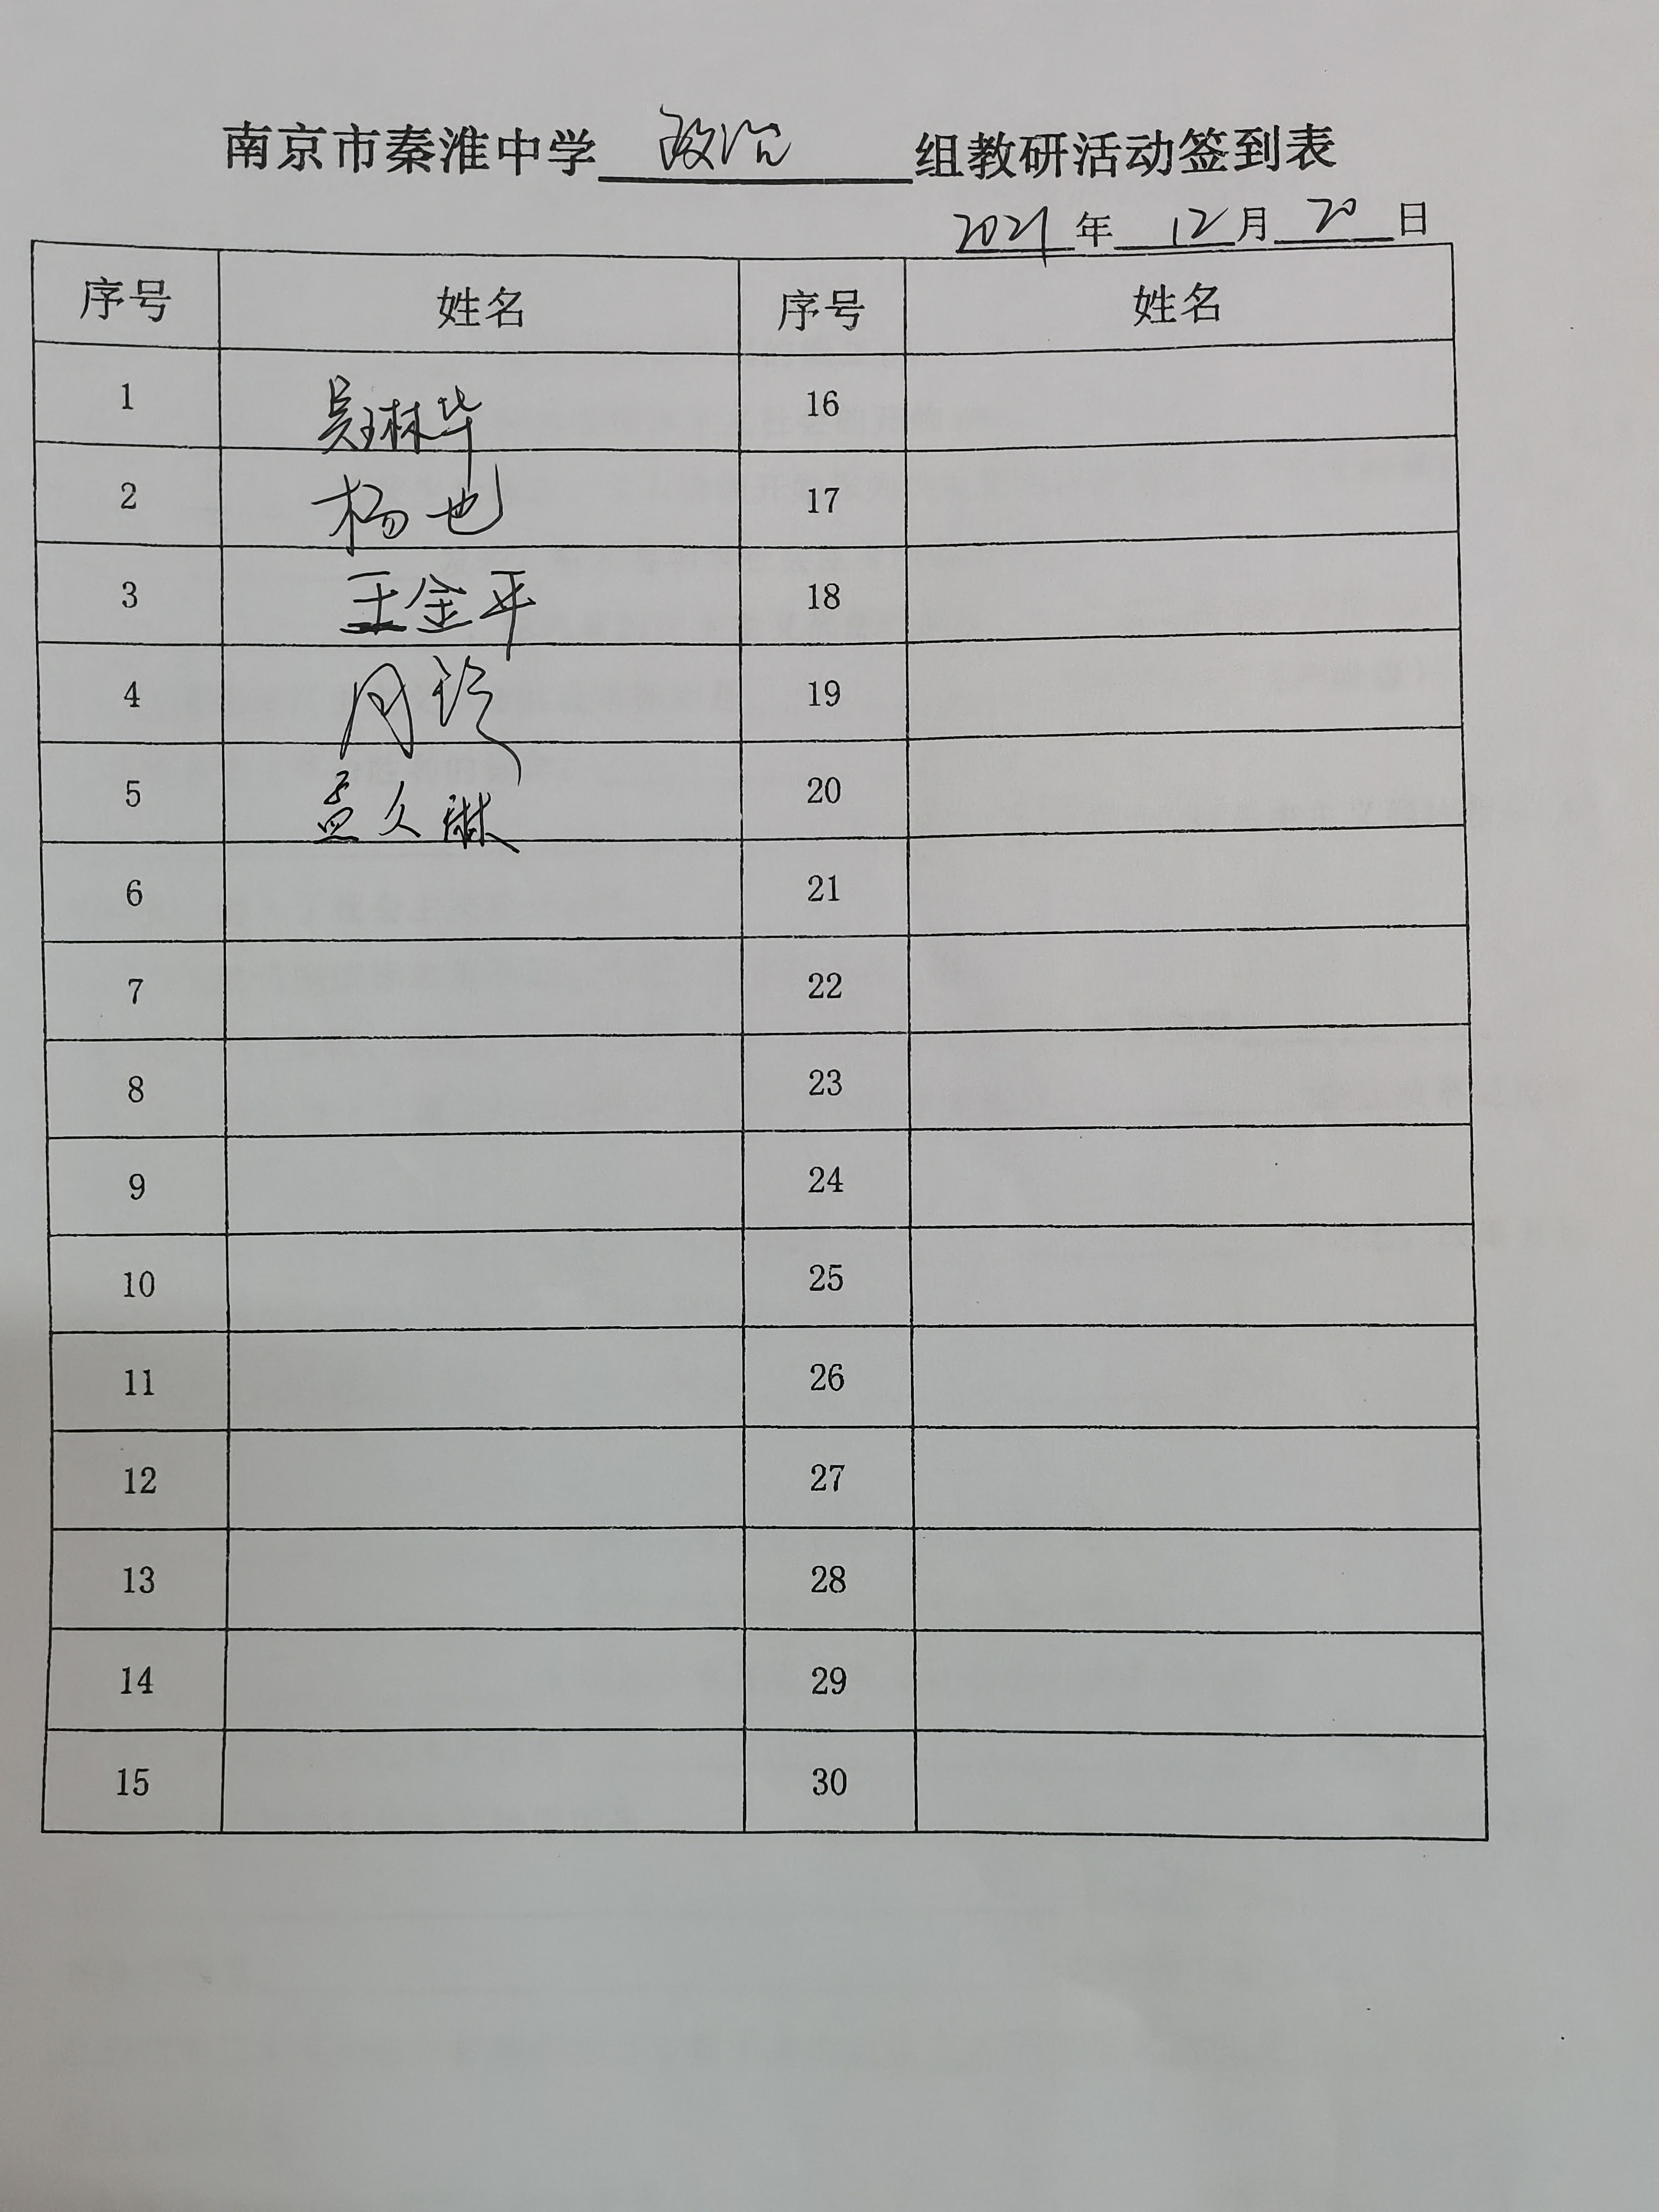 南京市秦淮中学 政治 组教研活动签到表
2021 年 12 月 20 日
序号 姓名 序号 姓名
1 吴琳华 16
2 杨也 17
3 王金平 18
4 19
5 孟久琳 20
6 21
7 22
8 23
9 24
10 25
11 26
12 27
13 28
14 29
15 30